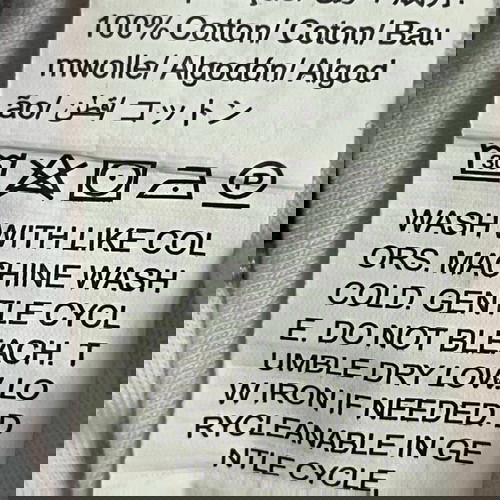 100% Cotton/ Coton/ Bau
mwolle/ Algodón/ Algod
ão/ قطن/ コットン
30 P
WASH WITH LIKE COL
ORS. MACHINE WASH
COLD. GENTLE CYCL
E. DO NOT BLEACH. T
UMBLE DRY LOW. LO
W IRON IF NEEDED. D
RYCLEANABLE IN GE
NTLE CYCLE